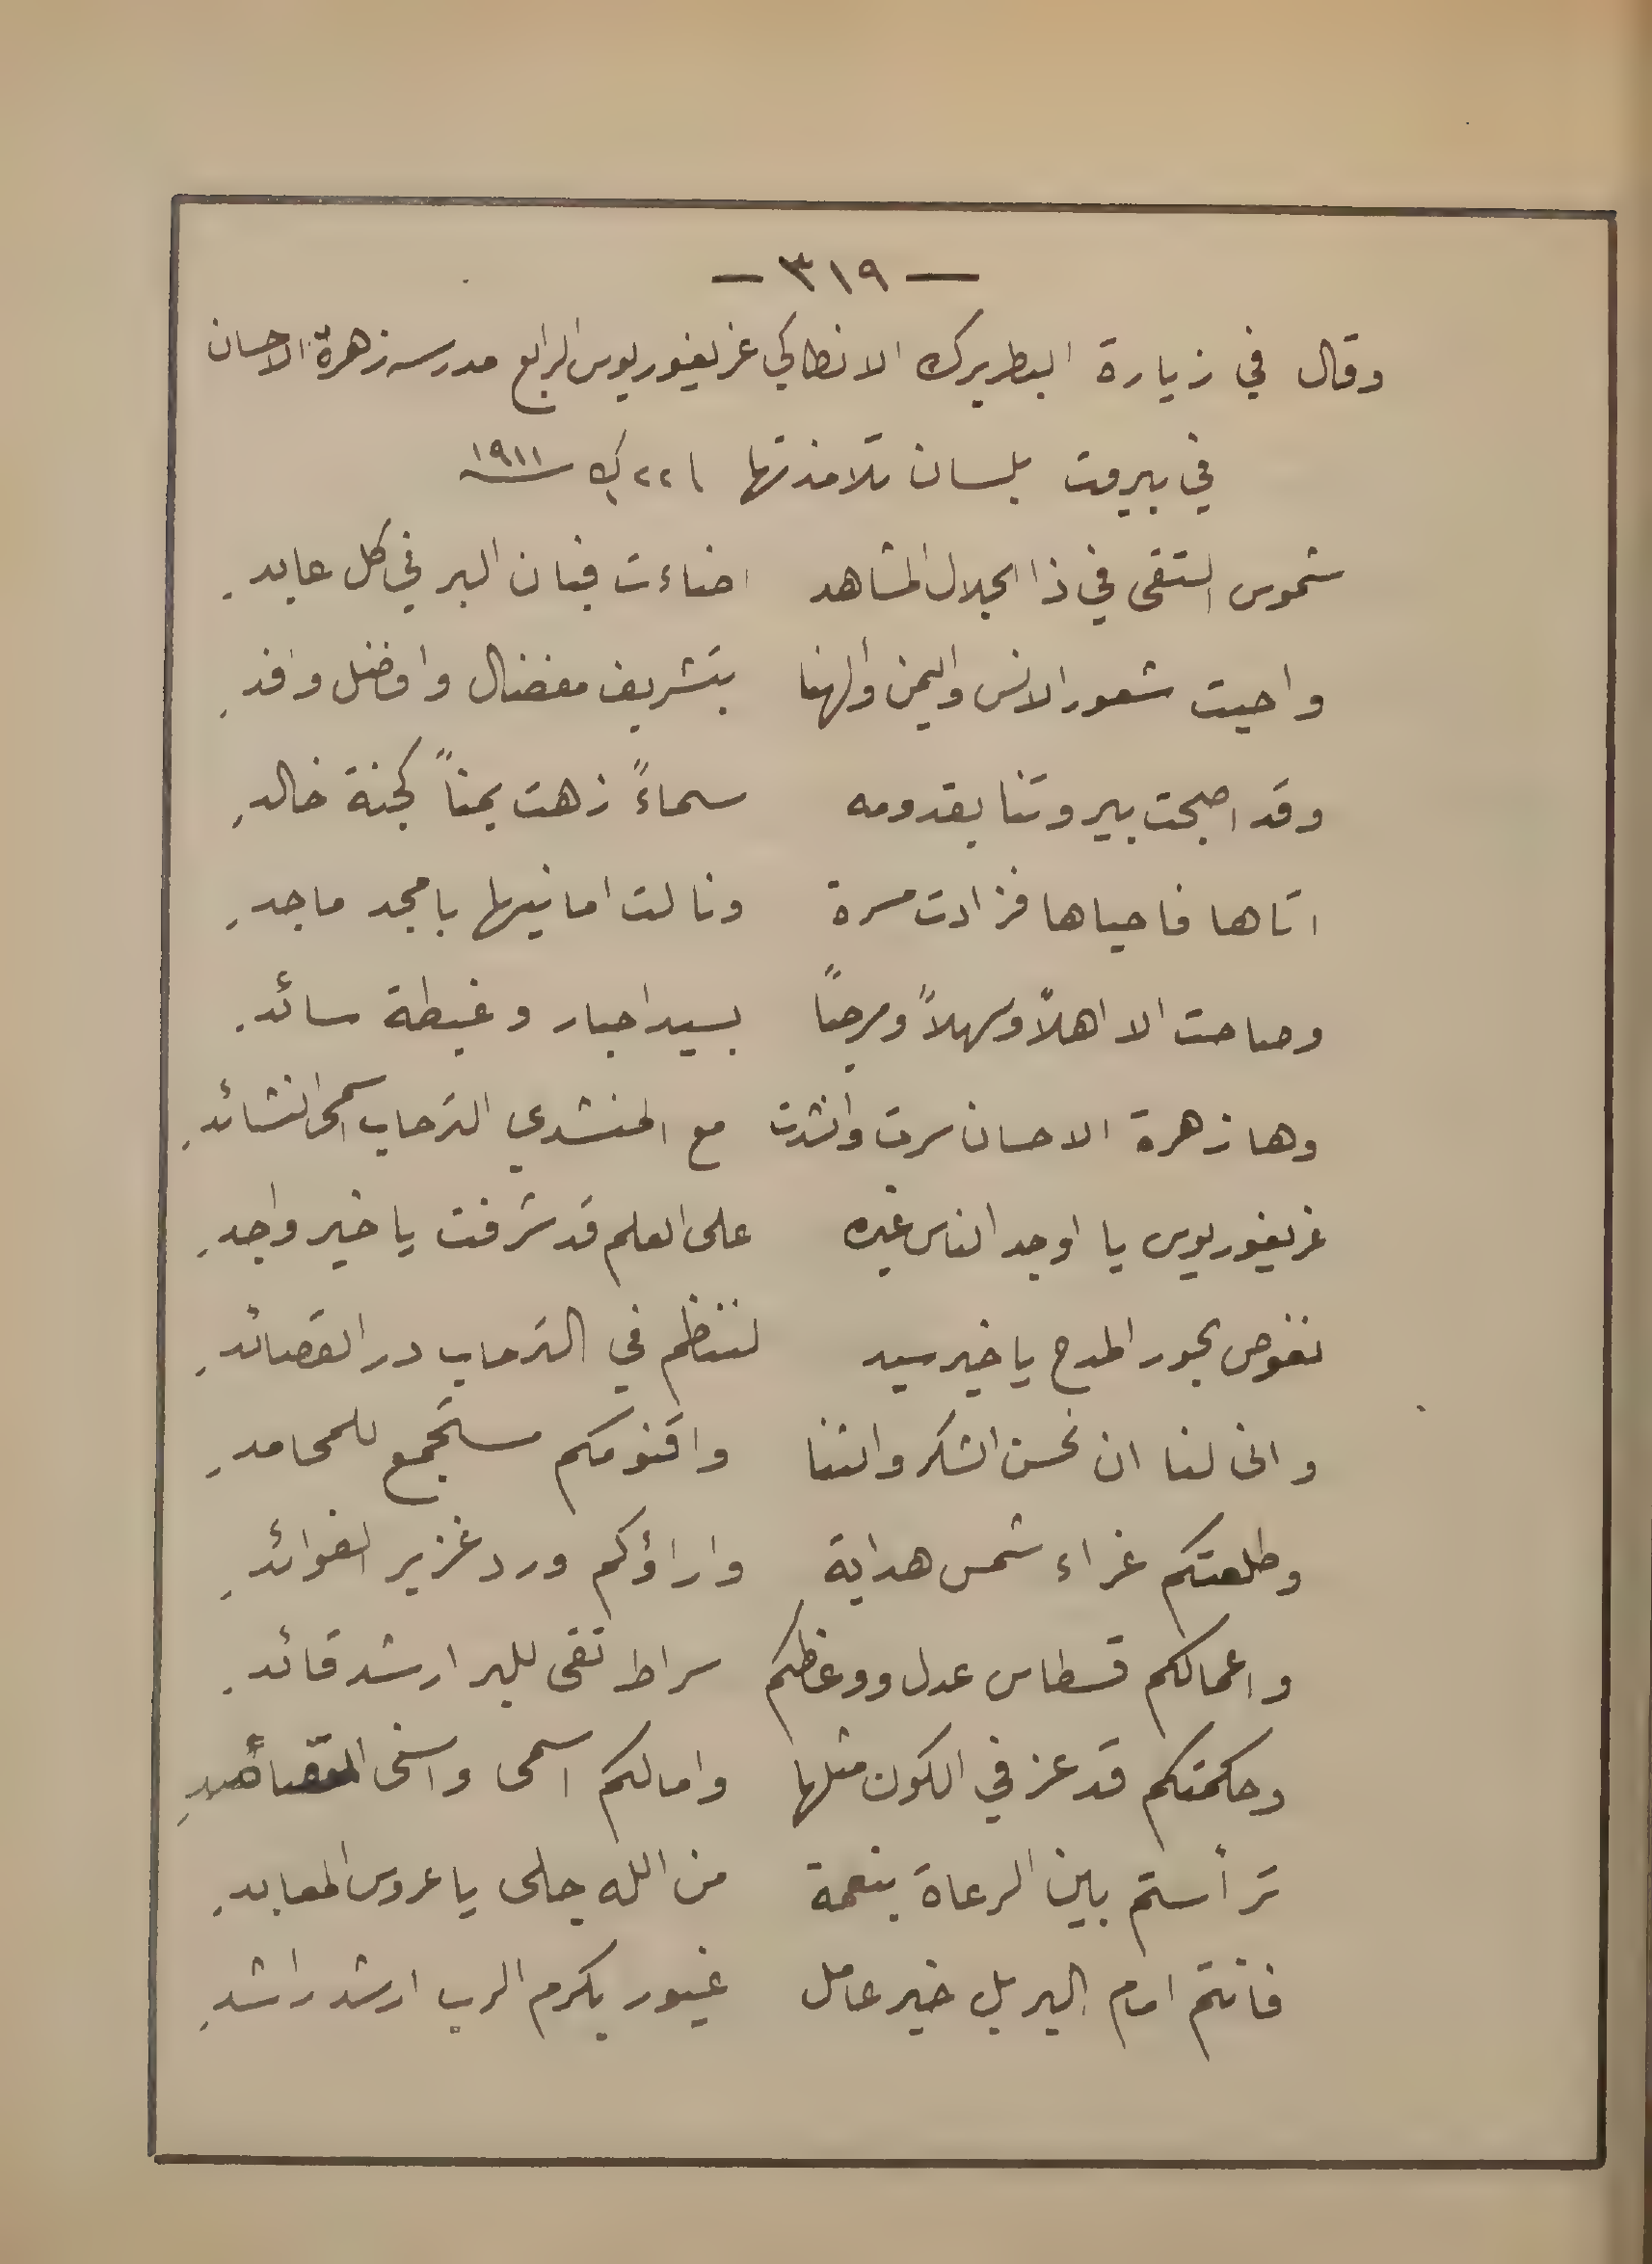 — ٣١٩ —
وقال في زيارة البطريرك الانطاكي غريغوريوس الرابع مدرسه زهرة الاحسان
في بيروت بلسان تلامذتها ٢٢ ك١ سنة ١٩١١
شموس التقى في ذا الجلال المشاهد اضاءت فبان البر في كل عابدِ
واحيت شعور الانس واليمن والهنا بتشريف مفضال وافضل وافدِ
وقد اصبحت بيروتنا بقدومه سماءً زهت يمناً كجنة خالدِ
اتاها فاحياها فزادت مسرة ونالت امانيها بامجد ماجدِ
وصاحت الا اهلاً وسهلاً ومرحباً بسيد احبار وغبطة سائدِ
وها زهرة الاحسان سرت وانشدت مع المنشدي الترحاب اسمى النشائدِ
غريغوريوس يا اوجد الناس غيره على العلم قد شرفت يا خير واجدِ
نغوص بحور المدح يا خير سيد لننظم في الترحاب در القصائدِ
وانى لنا ان نحسن الشكر والثنا واقنومكم مستجمع للمحامدِ
وطلعتكم غراء شمس هداية واراؤكم ورد غزير الفوائدِ
واعمالكم قسطاس عدل ووعظكم سراط تقى للبر ارشد قائدِ
وحكمتكم قد عز في الكون مثلها وامالكم اسمى واسنى
ترأستم بين الرعاة بنعمة من الله جلى يا عروس المعابدِ
فانتم امام البر بل خير عامل غيور بكرم الرب ارشد راشدِ